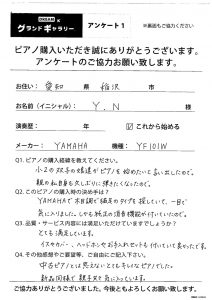 DREAM × グランドギャラリー アンケート1 ※裏面もご協力ください
ピアノ購入いただき誠にありがとうございます。
アンケートのご協力お願い致します。
お住い: 愛知 県 稲沢 市
お名前(イニシャル): Y.N 様
演奏歴: 年 ☑これから始める
メーカー: YAMAHA 機種: YF101W
Q1. ピアノの購入経緯を教えてください。
小2の双子の娘達がピアノを始めたいと言い出したので。
親の私自身も久しぶりに弾きたくなったので。
Q2. このピアノの購入時の決め手は?
YAMAHAで木目調で猫足のタイプを探していて、一目で
気に入りました。しかも純正の消音機能が付いていたので。
Q3. 品質・サービス内容には満足いただけていますでしょうか?
とても満足しています。
イスやカバー、ヘッドホンやお手入れセットも付いていて良かったです。
Q4. その他感想やご要望等、ご自由にご記入下さい。
中古ピアノとは思えないとてもキレイなピアノでした。
新品同様で親子共々気に入っています。
ご協力ありがとうございました。今後ともよろしくお願い致します。